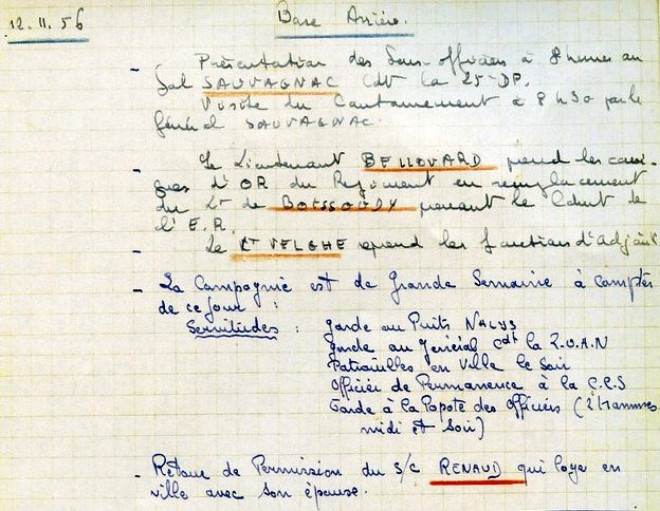 12.11.56 Base Arrière.
- Présentation des Sous-officiers à 8 heures au
Gal SAUVAGNAC Cdt la 25e DP.
Visite du Cantonnement à 8 h 30 par le
Général SAUVAGNAC.
- Le Lieutenant BELLOUARD prend les
d'OR du Régiment en remplacement
du Lt de BOISSOUDY prenant le Cdmt de
l'E.R.
- Le Lt VELGHE reprend les fonctions d'Adjoint
- La Compagnie est de Grande Semaine à compter
de ce jour :
Servitudes : garde au Puits
garde au général cdt la Z.O.A.N
Patrouilles en ville le Soir
Officier de Permanence à la C.R.S
Garde à la Popote des Officiers (2 hommes
midi et Soir)
- Retour de Permission du S/C RENAUD qui loge en
ville avec son épouse.